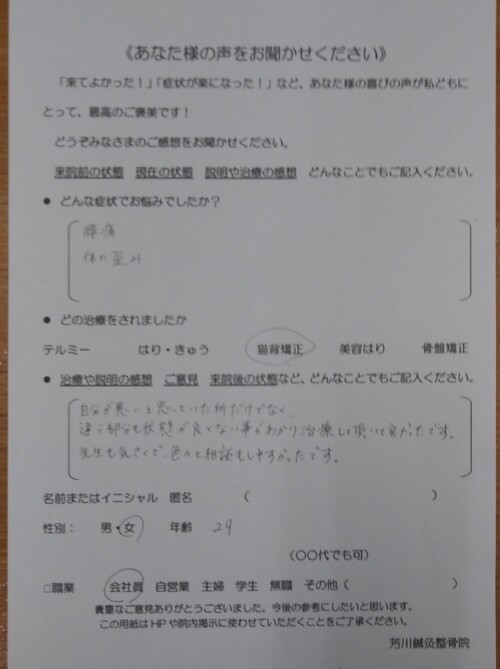 《あなた様の声をお聞かせください》
「来てよかった！」「症状が楽になった！」など、あなた様の喜びの声が私どもに
とって、最高のご褒美です！
どうぞみなさまのご感想をお聞かせください。
来院前の状態　現在の状態　説明や治療の感想　どんなことでもご記入ください。
● どんな症状でお悩みでしたか？
腰痛
体の歪み
● どの治療をされましたか
テルミー　はり・きゅう　猫背矯正　美容はり　骨盤矯正
● 治療や説明の感想　ご意見　来院後の状態など、どんなことでもご記入ください。
自分が悪いと思っていた所だけでなく、
違う部分も状態が良くない事がわかり治療して頂いて良かったです。
先生も気さくで、色々と相談もしやすかったです。
名前またはイニシャル　匿名　（　　　）
性別：　男・女　年齢　29
（〇〇代でも可）
□職業　会社員　自営業　主婦　学生　無職　その他（　　　）
貴重なご意見ありがとうございました。今後の参考にしたいと思います。
この用紙はHPや院内掲示に使わせていただくことをご了承ください。
芳川鍼灸整骨院